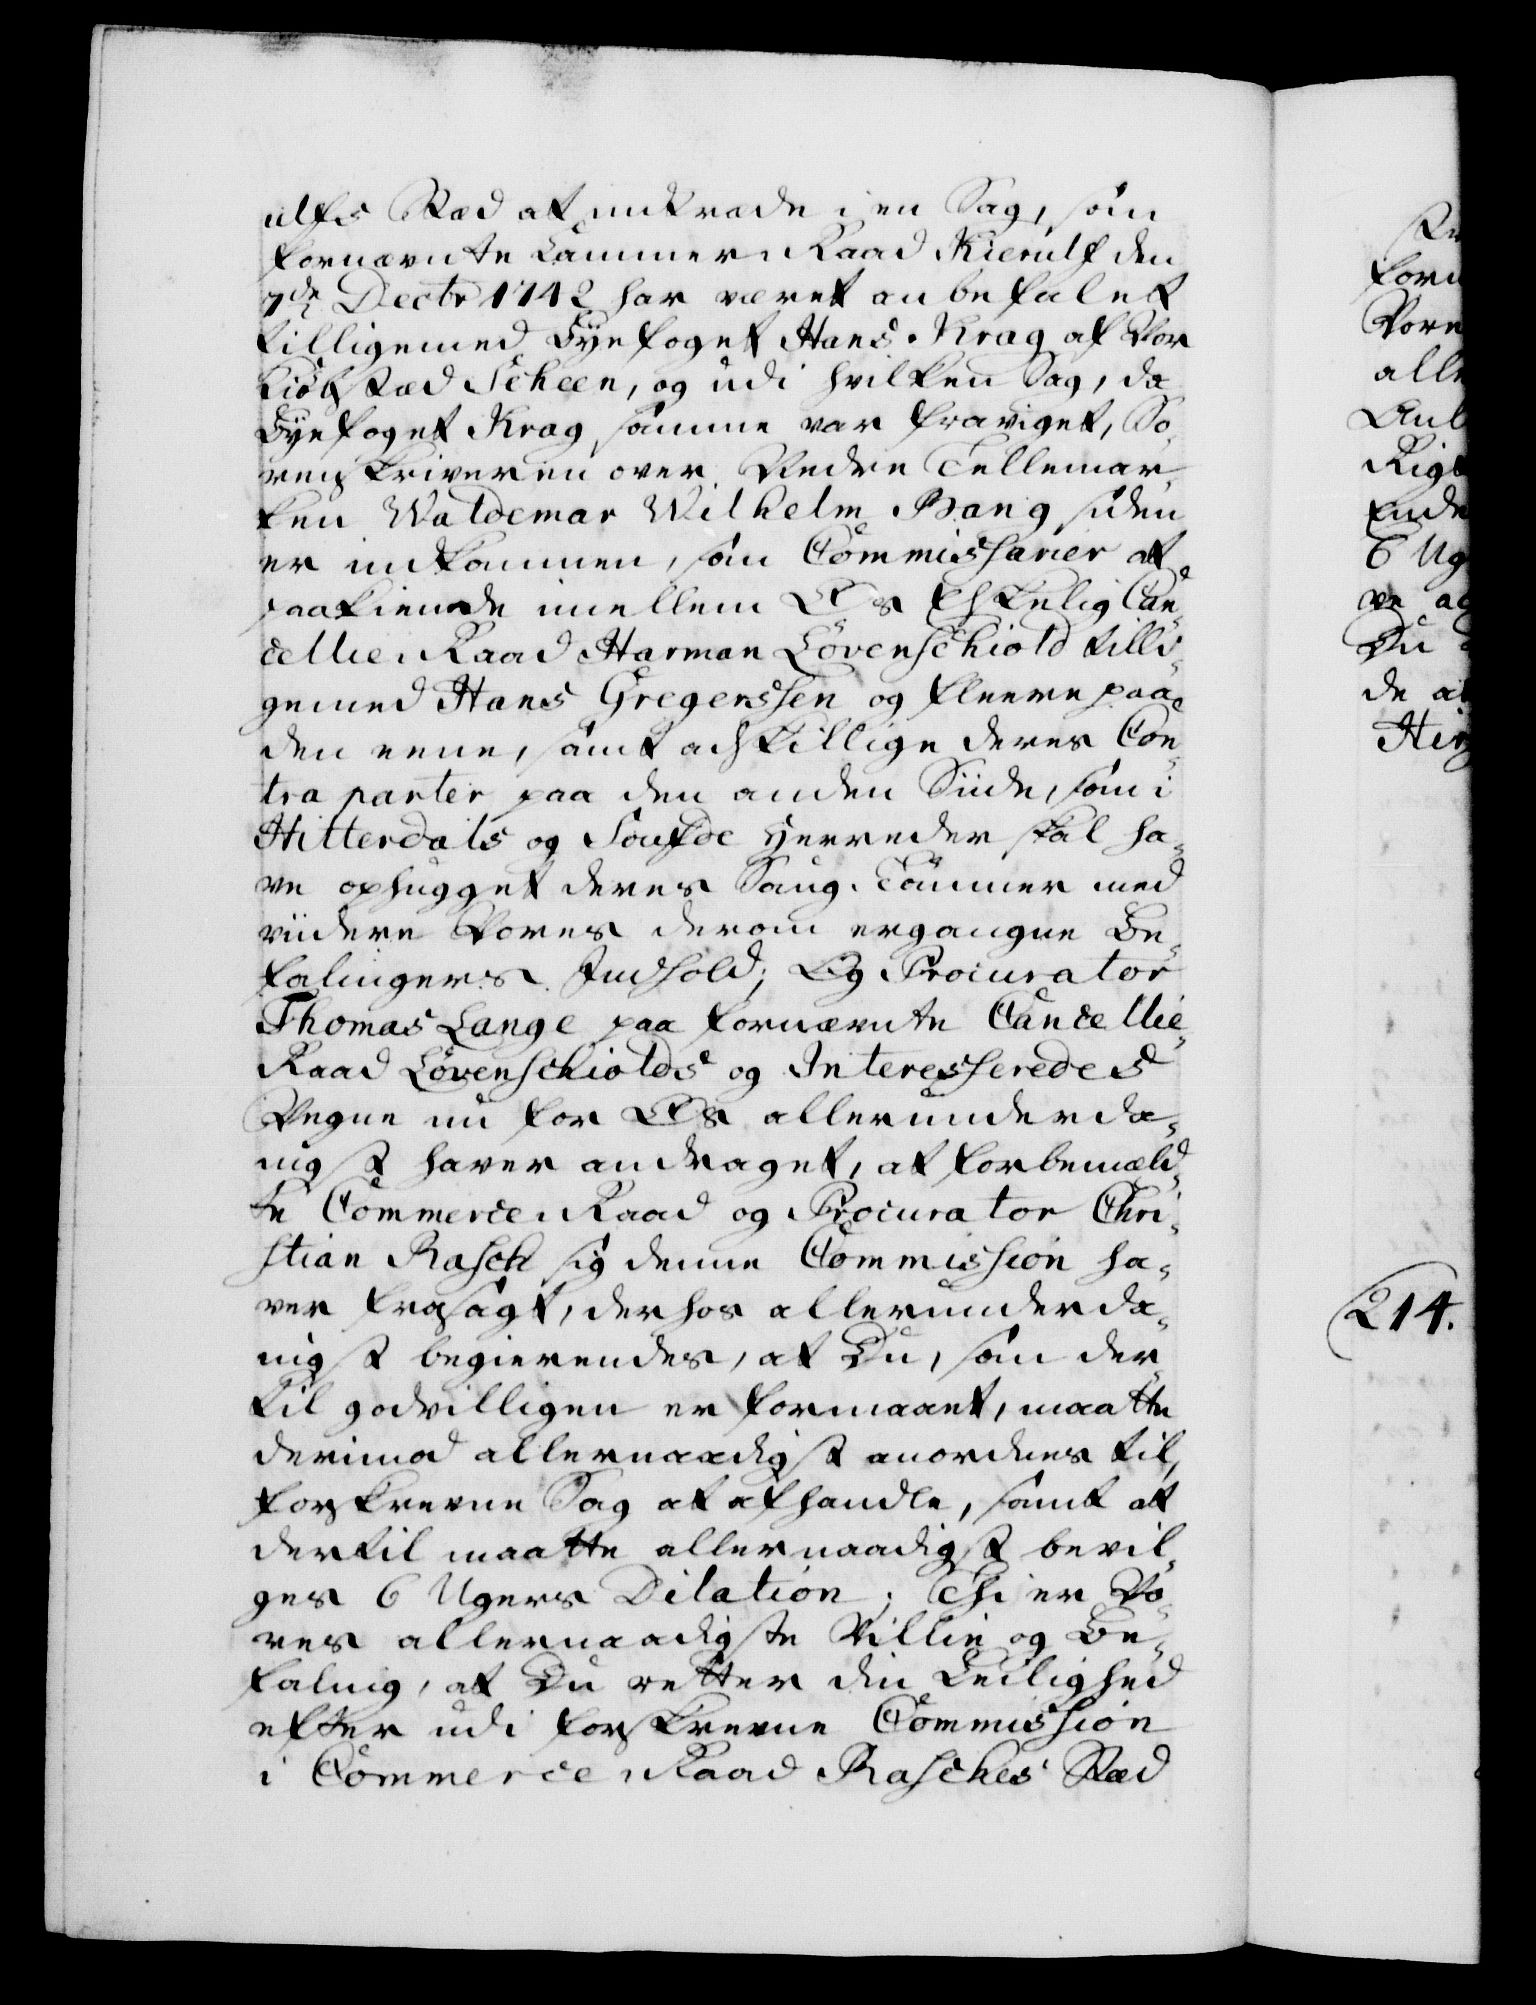 ulfs Stæd at indtræde i en Sag, som
fornævnte Cammer-Raad Kierulf den
7de Decbr 1742 har været anbefalet
tilligemed Byefoget Hans Krag af Vor
Kiøbstæd Scheen, og udi hvilken Sag, da
Byefoget Krag samme var fraviget, So-
renskriveren over Nedre Tellemar-
ken Waldemar Wilhelm Bang siden
er indkommen, som Commissarier at
paakiende imellem Os Elskelig Can-
cellie-Raad Harman Løvenschiold tilli-
gemed Hans Gregerssen og fleere paa
den eene, samt adskillige deres Con-
traparter paa den anden Siide, som i
Hitterdals og Soufde Herreder skal ha-
ve ophugget deres Saug-Tømmer med
viidere Vores derom ergangne Be-
falingers Indhold; Og Procurator
Thomas Lange paa fornævnte Cancellie-
Raad Løvenschiolds og Interesseredes
Vegne nu for Os allerunderda-
nigst haver andraget, at forbemæld-
te Commerce-Raad og Procurator Chri-
stian Rasch sig denne Commission ha-
ver frasagt, derhos allerunderda-
nigst begierendes, at Du, som der-
til godvilligen er formaaet, maatte
derimod allernaadigst anordnes til,
forskrevne Sag at afhandle, samt at
dertil maatte allernaadigst bevil-
ges 6 Ugers Dilation; Thi er Vo-
res allernaadigste Villie og Be-
faling, at Du retter din Leilighed
efter udi forskrevne Commission
i Commerce-Raad Rasches Stæd
forn
Vore
alle
Anb
Rigt
Ende
6 Ug
ve
Du
de at
Hir
214.